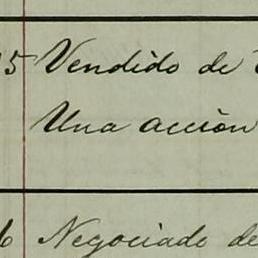 5 Vendido de
Una acción
6 Negociado de